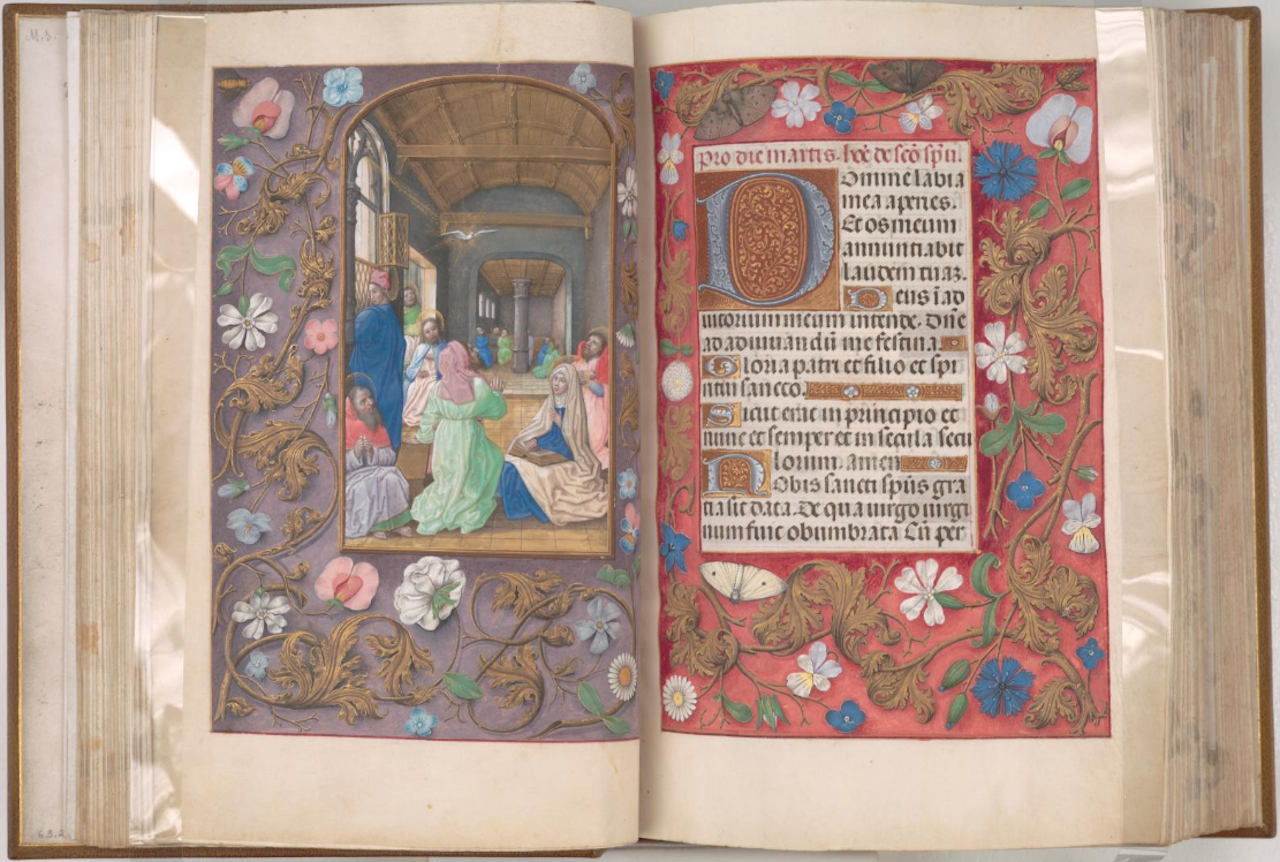 M.S.
63.2
pro die martis. hore de sco spu.
Domine labia
mea aperies.
Et os meum
annunciabit
laudem tuaz.
Deus i ad
iutorium meum intende. Dne
ad adiuuandu me festina.
Gloria patri et filio et spi
ritui sancto.
Sicut erat in principio et
nunc et semper et in secula secu
lorum. amen
Nobis sancti spus gra
tia sit data. De qua uirgo uirgi
num fuit obumbrata Cu per